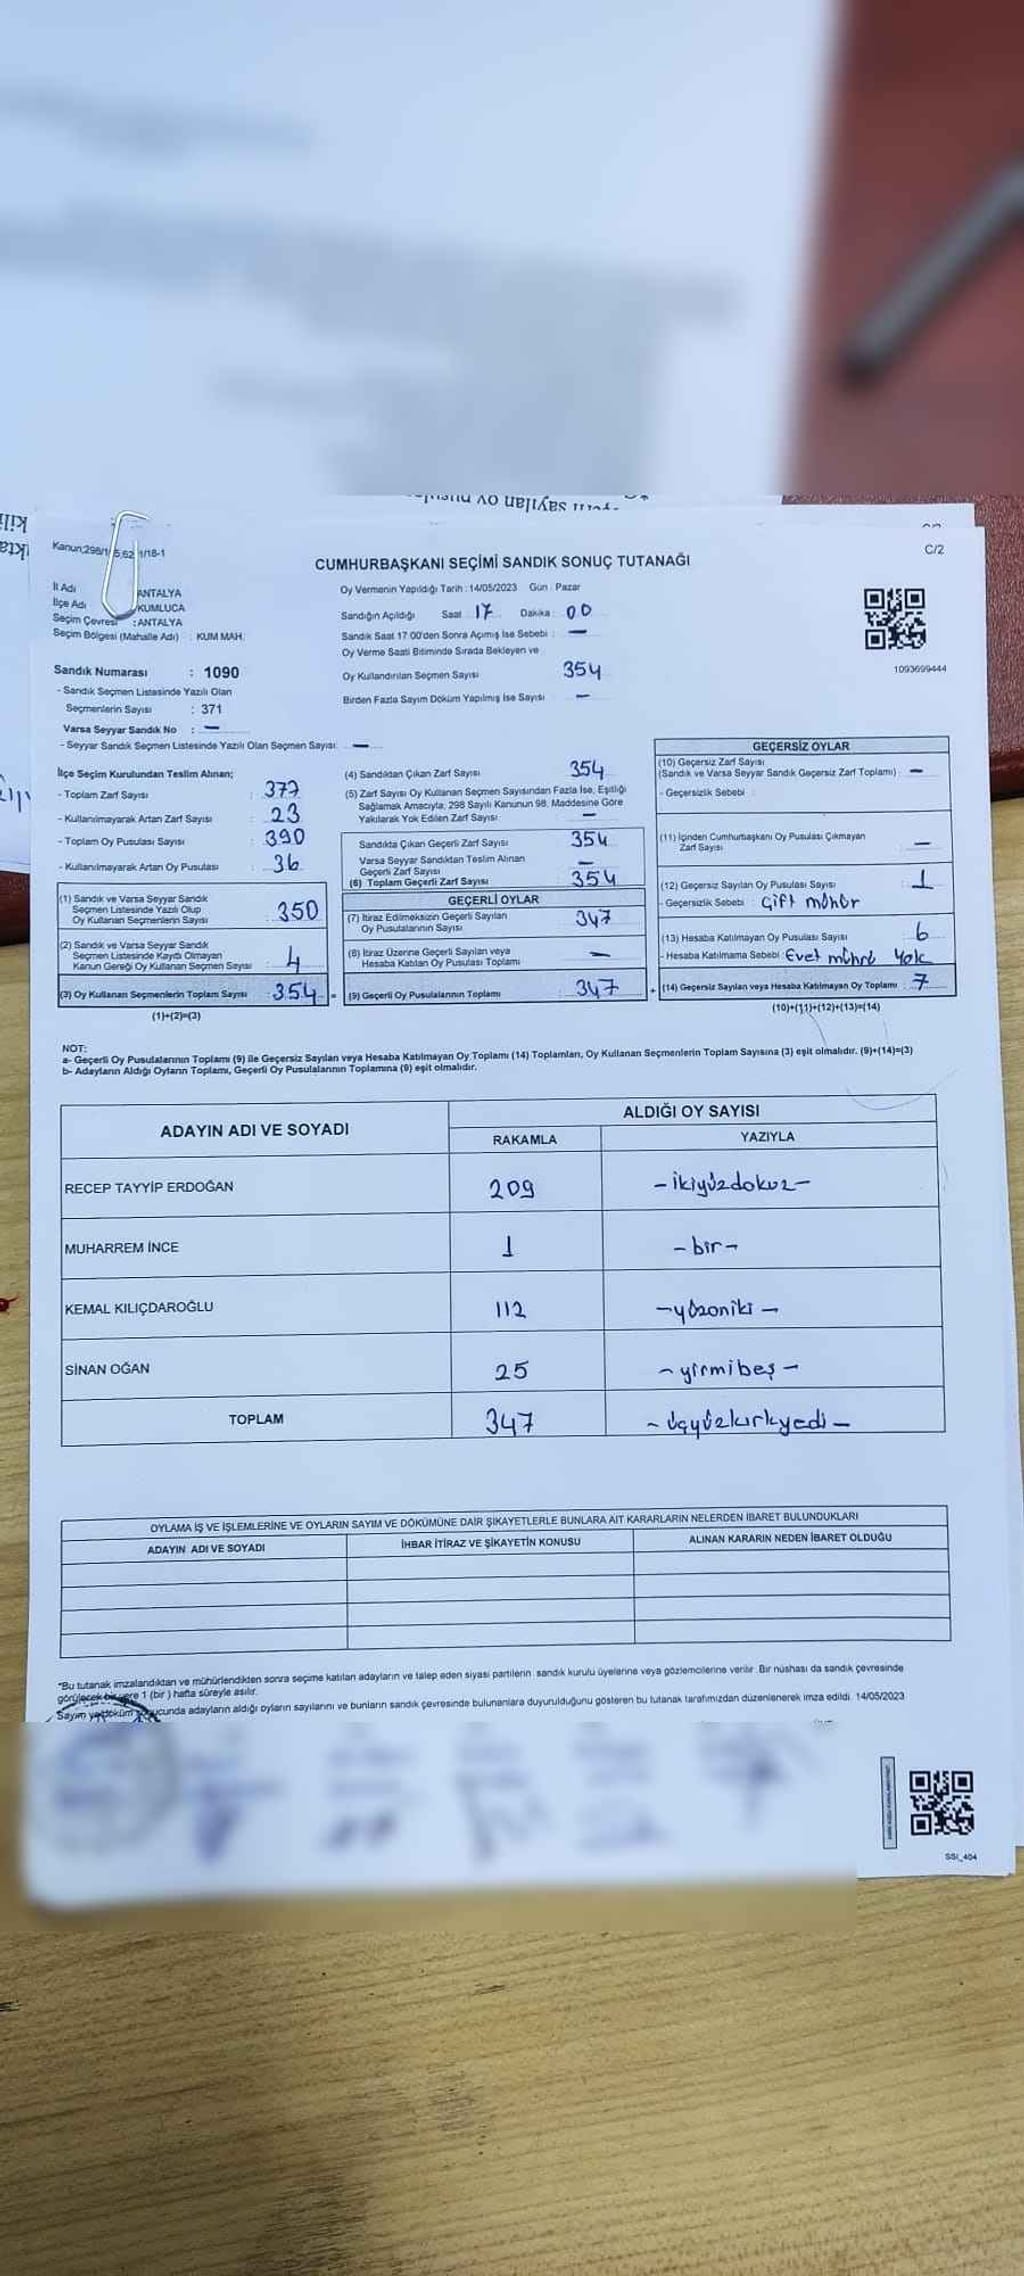 Kanun;298/1
1/18-1
C/2
CUMHURBAŞKANI SEÇİMİ SANDIK SONUÇ TUTANAĞI
İl Adı ANTALYA
İlçe Adı KUMLUCA
Seçim Çevresi : ANTALYA
Seçim Bölgesi (Mahalle Adı) : KUM MAH.
Oy Vermenin Yapıldığı Tarih : 14/05/2023 Gün : Pazar
Sandığın Açıldığı Saat 17 Dakika : 00
Sandık Saat 17:00'den Sonra Açımış İse Sebebi : —
Oy Verme Saati Bitiminde Sırada Bekleyen ve
Oy Kullandırılan Seçmen Sayısı 354
Birden Fazla Sayım Döküm Yapılmış İse Sayısı —
1093699444
Sandık Numarası : 1090
- Sandık Seçmen Listesinde Yazılı Olan
Seçmenlerin Sayısı : 371
Varsa Seyyar Sandık No : —
- Seyyar Sandık Seçmen Listesinde Yazılı Olan Seçmen Sayısı: —
İlçe Seçim Kurulundan Teslim Alınan;
- Toplam Zarf Sayısı : 377
- Kullanılmayarak Artan Zarf Sayısı : 23
- Toplam Oy Pusulası Sayısı : 390
- Kullanılmayarak Artan Oy Pusulası : 36
(1) Sandık ve Varsa Seyyar Sandık
Seçmen Listesinde Yazılı Olup
Oy Kullanan Seçmenlerin Sayısı : 350
(2) Sandık ve Varsa Seyyar Sandık
Seçmen Listesinde Kaydı Olmayan
Kanun Gereği Oy Kullanan Seçmen Sayısı : 4
(3) Oy Kullanan Seçmenlerin Toplam Sayısı : 354
(1)+(2)=(3)
(4) Sandıktan Çıkan Zarf Sayısı 354
(5) Zarf Sayısı Oy Kullanan Seçmen Sayısından Fazla İse, Eşitliği
Sağlamak Amacıyla, 298 Sayılı Kanunun 98. Maddesine Göre
Yakılarak Yok Edilen Zarf Sayısı —
Sandıkta Çıkan Geçerli Zarf Sayısı 354
Varsa Seyyar Sandıktan Teslim Alınan
Geçerli Zarf Sayısı —
(6) Toplam Geçerli Zarf Sayısı 354
GEÇERLİ OYLAR
(7) İtiraz Edilmeksizin Geçerli Sayılan
Oy Pusulalarının Sayısı 347
(8) İtiraz Üzerine Geçerli Sayılan veya
Hesaba Katılan Oy Pusulası Toplamı —
= (9) Geçerli Oy Pusulalarının Toplamı : 347
GEÇERSİZ OYLAR
(10) Geçersiz Zarf Sayısı
(Sandık ve Varsa Seyyar Sandık Geçersiz Zarf Toplamı) : —
- Geçersizlik Sebebi :
(11) İçinden Cumhurbaşkanı Oy Pusulası Çıkmayan
Zarf Sayısı —
(12) Geçersiz Sayılan Oy Pusulası Sayısı : 1
- Geçersizlik Sebebi : Çift mühür
(13) Hesaba Katılmayan Oy Pusulası Sayısı 6
- Hesaba Katılmama Sebebi : Evet mührü yok
+ (14) Geçersiz Sayılan veya Hesaba Katılmayan Oy Toplamı : 7
(10)+(11)+(12)+(13)=(14)
NOT:
a- Geçerli Oy Pusulalarının Toplamı (9) ile Geçersiz Sayılan veya Hesaba Katılmayan Oy Toplamı (14) Toplamları, Oy Kullanan Seçmenlerin Toplam Sayısına (3) eşit olmalıdır. (9)+(14)=(3)
b- Adayların Aldığı Oyların Toplamı, Geçerli Oy Pusulalarının Toplamına (9) eşit olmalıdır.
ADAYIN ADI VE SOYADI ALDIĞI OY SAYISI
RAKAMLA YAZIYLA
RECEP TAYYİP ERDOĞAN 209 – ikiyüzdokuz –
MUHARREM İNCE 1 – bir –
KEMAL KILIÇDAROĞLU 112 – yüzoniki –
SİNAN OĞAN 25 – yirmibeş –
TOPLAM 347 – üçyüzkırkyedi –
OYLAMA İŞ VE İŞLEMLERİNE VE OYLARIN SAYIM VE DÖKÜMÜNE DAİR ŞİKAYETLERLE BUNLARA AİT KARARLARIN NELERDEN İBARET BULUNDUKLARI
ADAYIN ADI VE SOYADI İHBAR İTİRAZ VE ŞİKAYETİN KONUSU ALINAN KARARIN NEDEN İBARET OLDUĞU
*Bu tutanak imzalandıktan ve mühürlendikten sonra seçime katılan adayların ve talep eden siyasi partilerin sandık kurulu üyelerine veya gözlemcilerine verilir. Bir nüshası da sandık çevresinde
görülecek bir yere 1 (bir) hafta süreyle asılır.
Sayım ve döküm sonucunda adayların aldığı oyların sayılarını ve bunların sandık çevresinde bulunanlara duyurulduğunu gösteren bu tutanak tarafımızdan düzenlenerek imza edildi. 14/05/2023
SSI_404